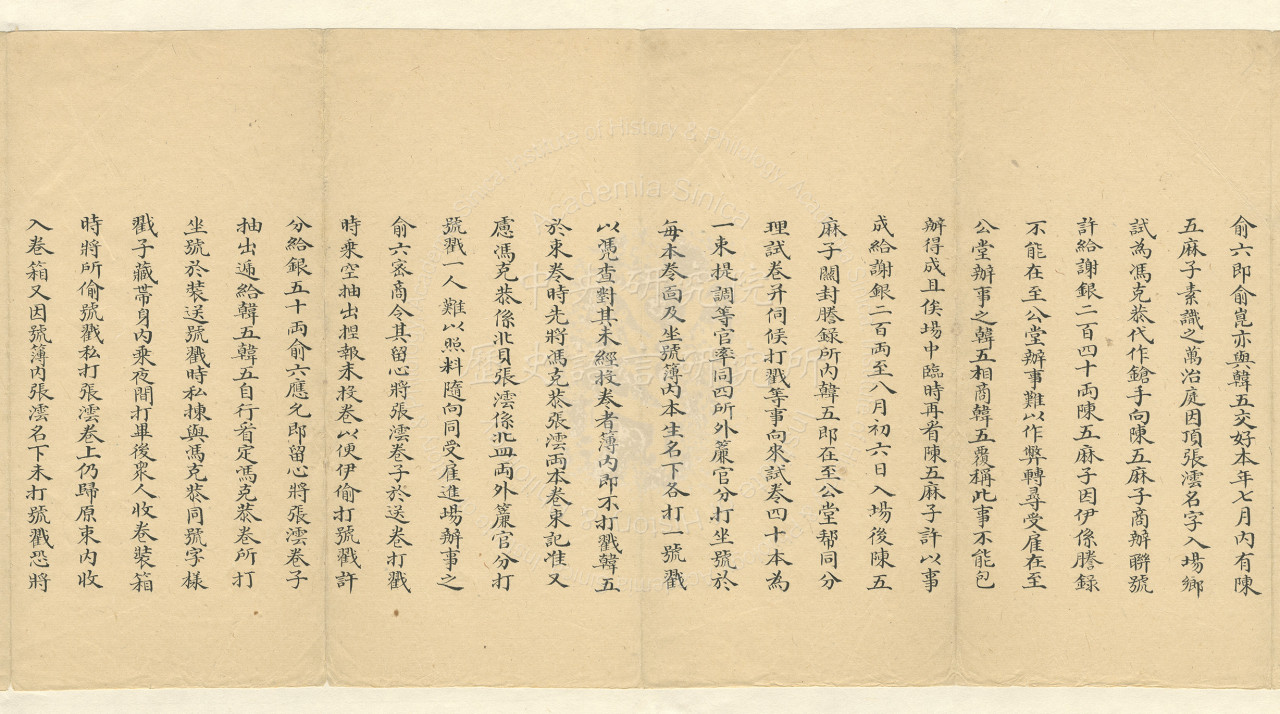 俞六即俞崑亦與韓五交好本年七月內有陳
五麻子素識之萬冶庭因頂張澐名字入場鄉
試為馮克恭代作鎗手向陳五麻子商辦聯號
許給謝銀二百四十兩陳五麻子因伊係謄錄
不能在至公堂辦事難以作弊轉尋受雇在至
公堂辦事之韓五相商韓五覆稱此事不能包
辦得成且俟場中臨時再看陳五麻子許以事
成給謝銀二百兩至八月初六日入場後陳五
麻子關封謄錄所內韓五即在至公堂幫同分
理試卷并伺候打戳等事向來試卷四十本為
一束提調等官率同四所外簾官分打坐號於
每本卷面及坐號簿內本生名下各打一號戳
以凴查對其未經投卷者簿內即不打戳韓五
於束卷時先將馮克恭張澐兩本卷束記准又
慮馮克恭係北貝張澐係北皿兩外簾官分打
號戳一人難以照料隨向同受雇進場辦事之
俞六密商令其留心將張澐卷子於送卷打戳
時乘空抽出捏報未投卷以便伊偷打號戳許
分給銀五十兩俞六應允即留心將張澐卷子
抽出遞給韓五韓五自行看定馮克恭卷所打
坐號於裝送號戳時私揀與馮克恭同號字樣
戳子藏帶身內乘夜間打畢後衆人收卷裝箱
時將所偷號戳私打張澐卷上仍歸原束內收
入卷箱又因號簿內張澐名下未打號戳恐將
中央研究院
歷史語言研究所
Academia Sinica
Institute of History & Philology